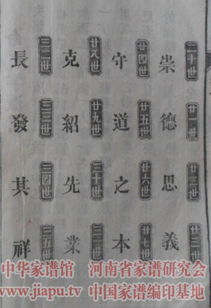 二十世 崇 廿一世 德 廿二世 思 廿三世 義
廿四世 守 廿五世 道 廿六世 之 廿七世 本
廿八世 克 廿九世 紹 三十世 先 三一世 業
三二世 長 三三世 發 三四世 其 三五世 祥
中华家谱馆 河南省家谱研究会
www.jiapu.tv 中国家谱编印基地